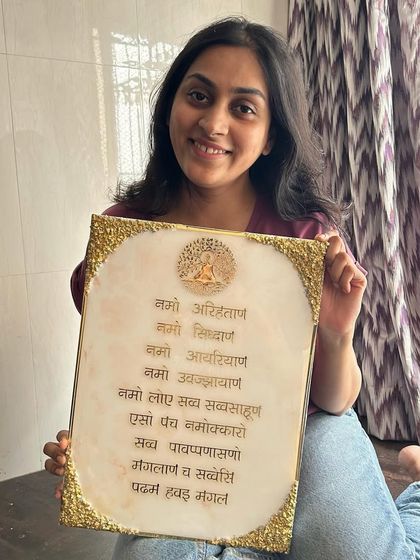 नमो अरिहंताणं
नमो सिध्दाणं
नमो आयरियाणं
नमो उवज्झायाणं
नमो लोए सव्व सव्वसाहूणं
एसो पंच नमोक्कारो
सव्व पावप्पणासणो
मंगलाणं च सव्वेसिं
पढमं हवइ मंगलं